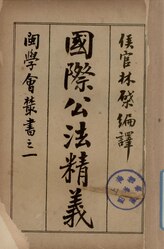 侯官林棨編譯
國際公法精義
閩學會叢書之一